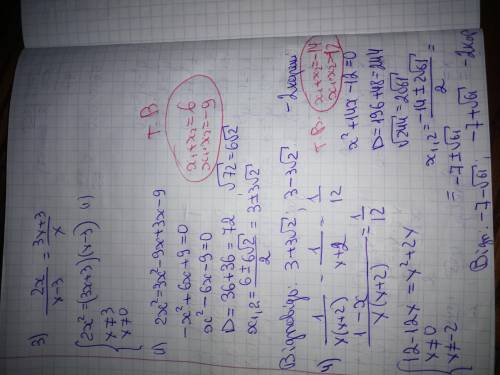 3) 2x/(x-3) = (3x+3)/x
{ 2x² = (3x+3)(x-3) (1)
x ≠ 3
x ≠ 0
1) 2x² = 3x² - 9x + 3x - 9
-x² + 6x + 9 = 0
x² - 6x - 9 = 0
D = 36 + 36 = 72 √72 = 6√2
x₁,₂ = (6 ± 6√2)/2 = 3 ± 3√2
Т. В.
x₁+x₂ = 6
x₁·x₂ = -9
Відповідь: 3+3√2; 3-3√2 - 2 корені
4) 1/(x(x+2)) - 1/(x+2) = 1/12
(1-x)/(x(x+2)) = 1/12
{ 12 - 12x = x² + 2x
x ≠ 0
x ≠ -2
Т. В. x₁+x₂ = -14
x₁x₂ = -12
x² + 14x - 12 = 0
D = 196 + 48 = 244
√244 = 2√61
x₁,₂ = (-14 ± 2√61)/2 =
= -7 ± √61
Відп: -7-√61; -7+√61 - 2кор